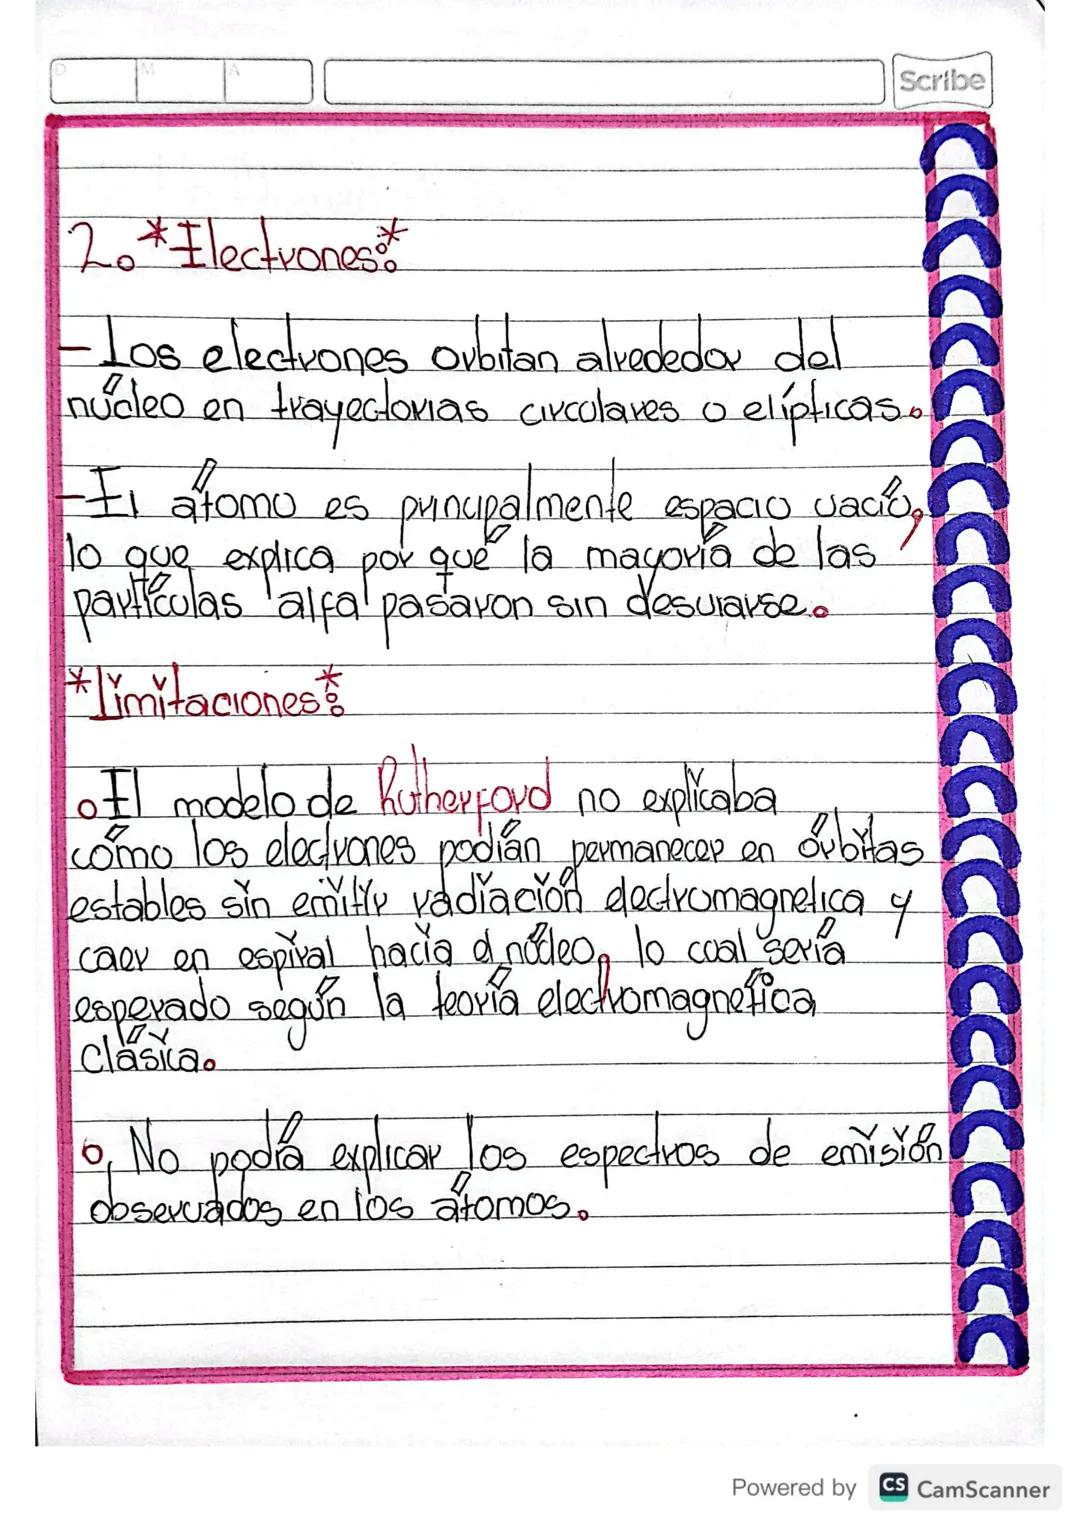 D M A Scribe
2. *Electrones:*
- Los electrones orbitan alrededor del
núcleo en trayectorias circulares o elípticas.
- El átomo es principalmente espacio vacío,
lo que explica por qué la mayoría de las
partículas 'alfa' pasaron sin desviarse.
*Limitaciones:*
o El modelo de Rutherford no explicaba
cómo los electrones podían permanecer en órbitas
estables sin emitir radiación electromagnetica y
caer en espiral hacia el núcleo, lo cual sería
esperado según la teoría electromagnética
Clásica.
o, No podía explicar los espectros de emisión
observados en los átomos.
Powered by CS CamScanner